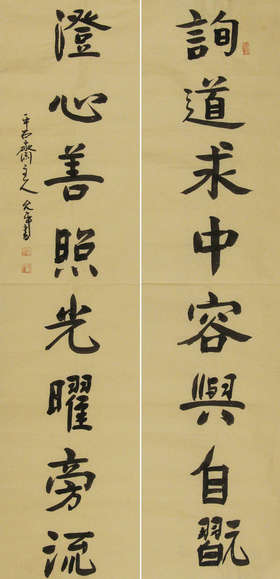 詢道求中容與自翫
澄心善照光曜旁流
齋主人